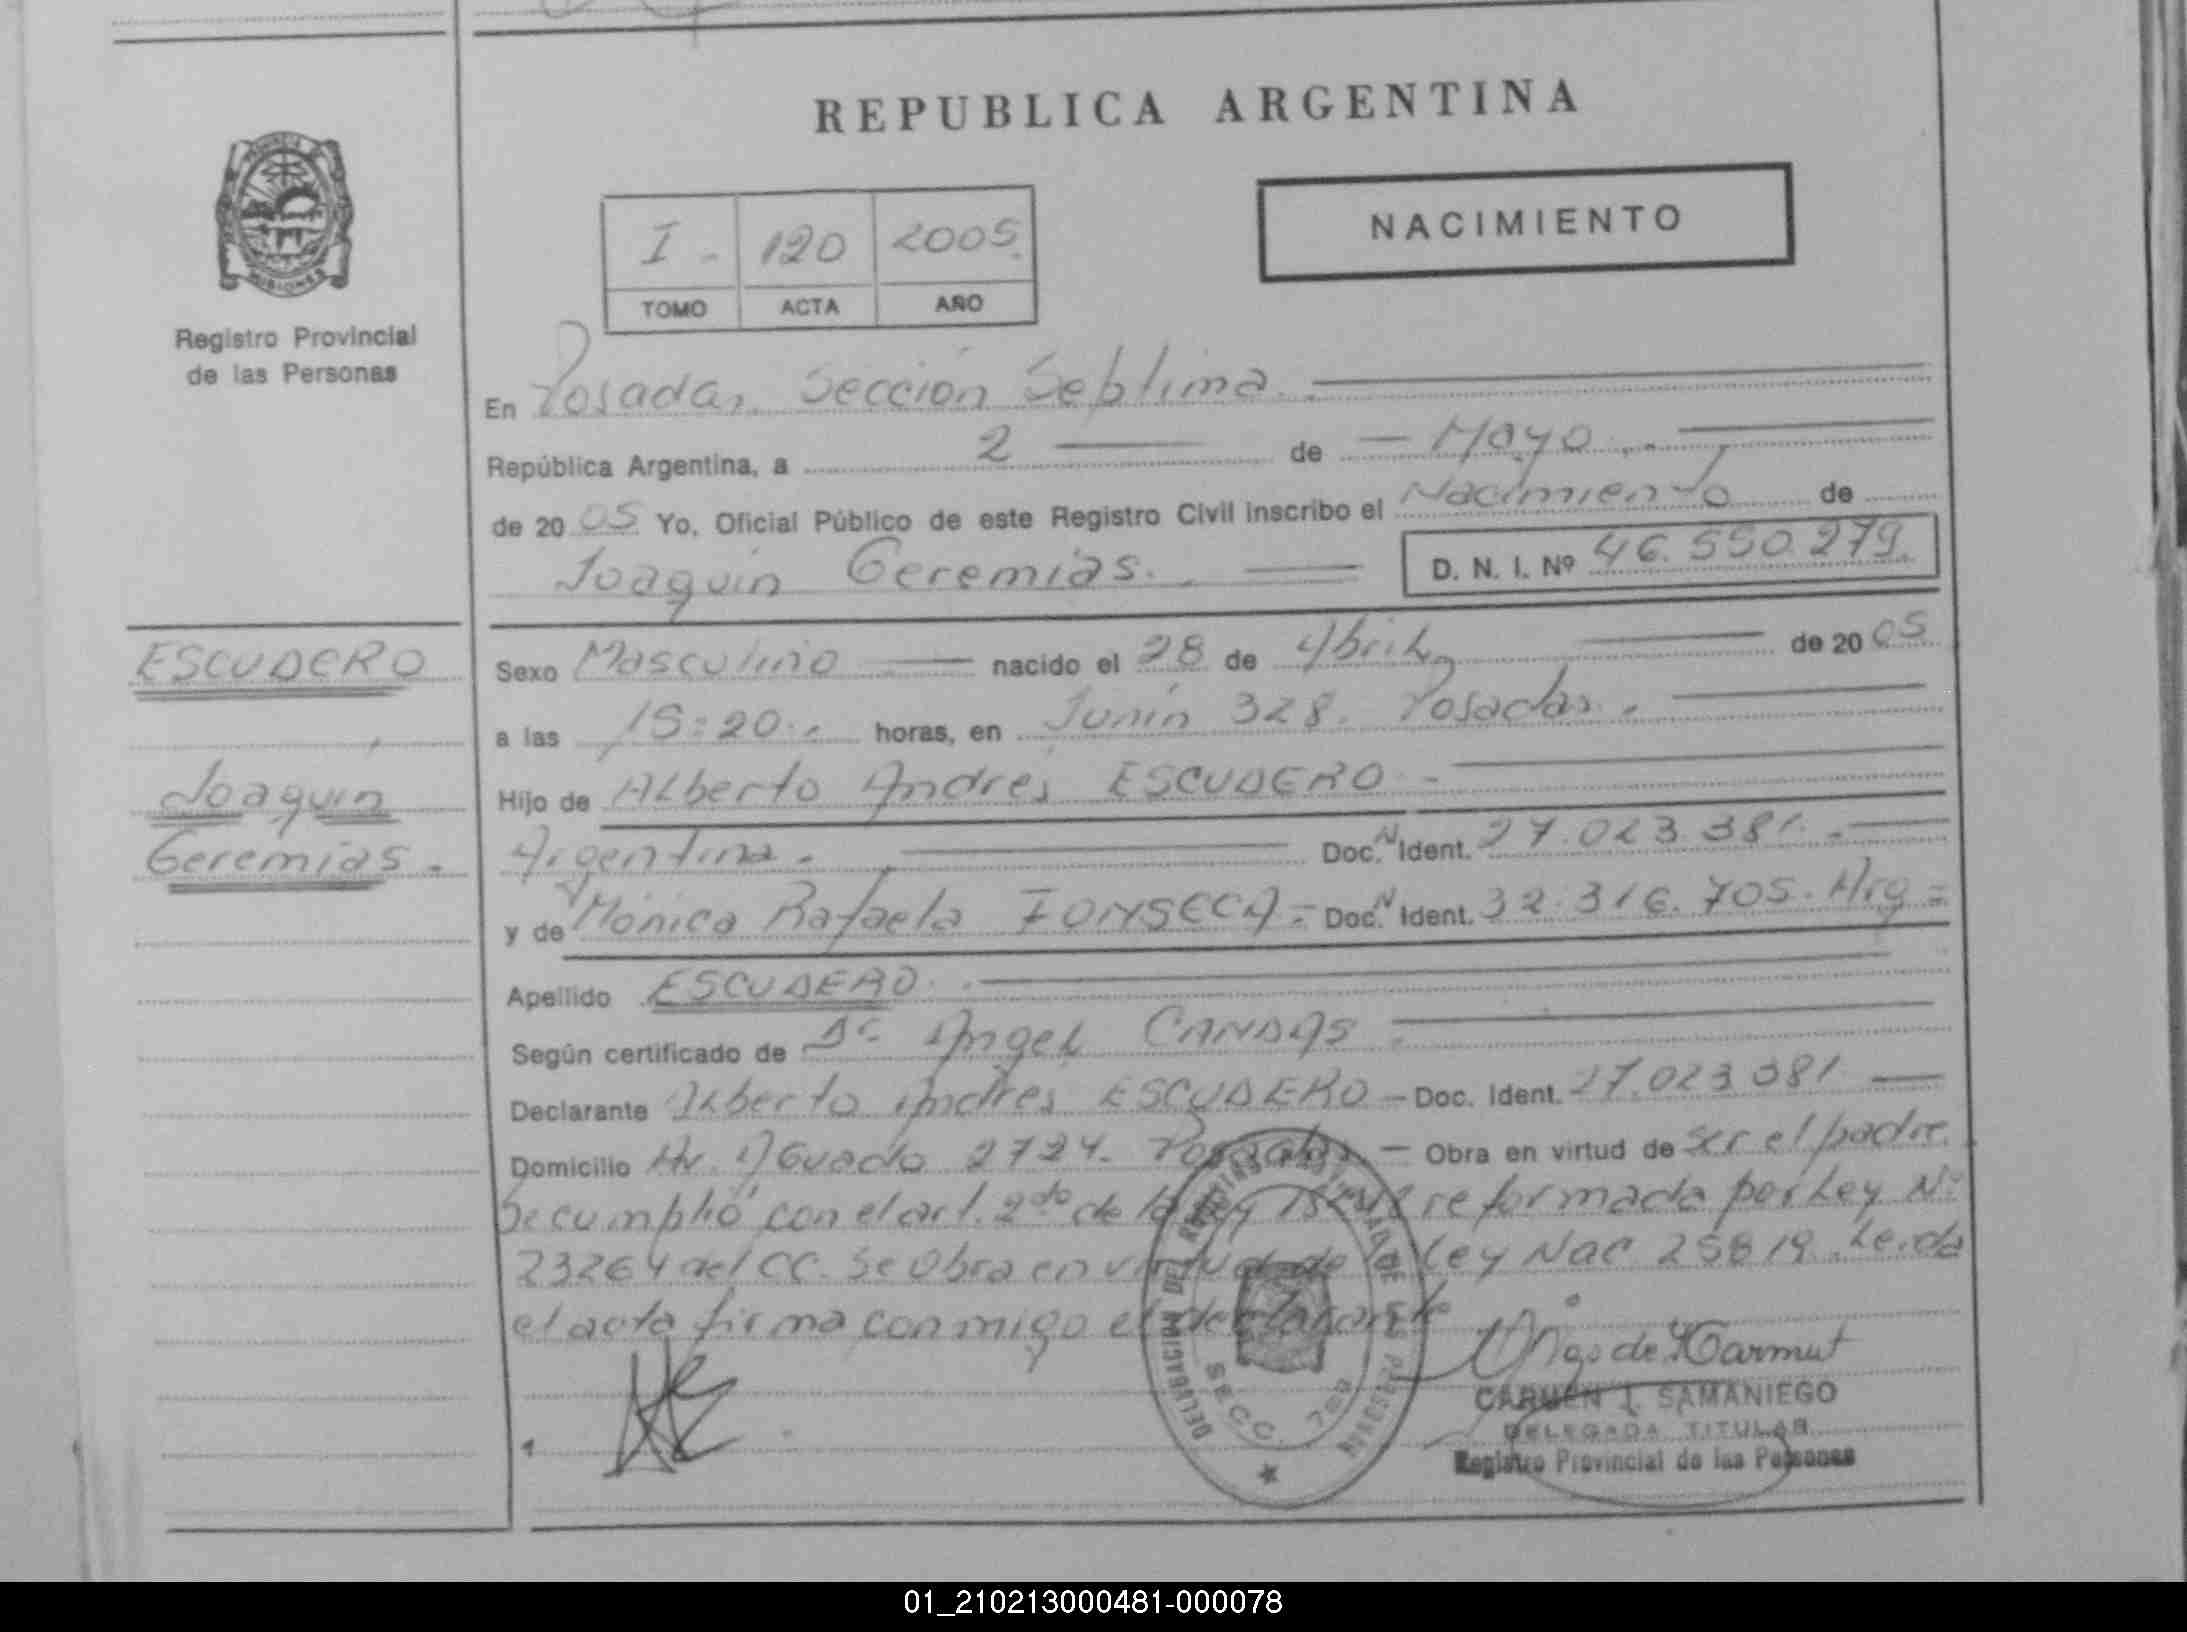 REPUBLICA ARGENTINA
MISIONES
Registro Provincial
de las Personas
I - 120 2005.
TOMO ACTA AÑO
NACIMIENTO
En Posadas, Sección Septima.
República Argentina, a 2 de Mayo
de 2005 Yo, Oficial Público de este Registro Civil inscribo el Nacimiento de
Joaquín Geremias. D. N. I. Nº 46.550.279.
ESCUDERO
Joaquín
Geremias.-
Sexo Masculino nacido el 28 de Abril de 2005
a las 15:20 horas, en Junín 328. Posadas.
Hijo de Alberto Andres ESCUDERO -
Argentina. Doc. N Ident. 27.023.381. -
y de Mónica Rafaela FONSECA = Doc. N Ident. 32.316.705. Arg =
Apellido ESCUDERO.
Según certificado de Dr. Angel CANDAS
Declarante Alberto Andres ESCUDERO - Doc. Ident. 27.023.381
Domicilio Av. Aguado 2724. Posadas. - Obra en virtud de ser el padre.
Se cumplió con el art. 2do de la Ley reformada por Ley Nº
23264 del CC. Se Obra en virtud de Ley Nac 25819. Leida
el acta firma conmigo el declarante
DELEGACION DEL REGISTRO PROVINCIAL DE LAS PERSONAS
SECC. 7ma
CARMEN I. SAMANIEGO
DELEGADA TITULAR
Registro Provincial de las Personas
01_210213000481-000078